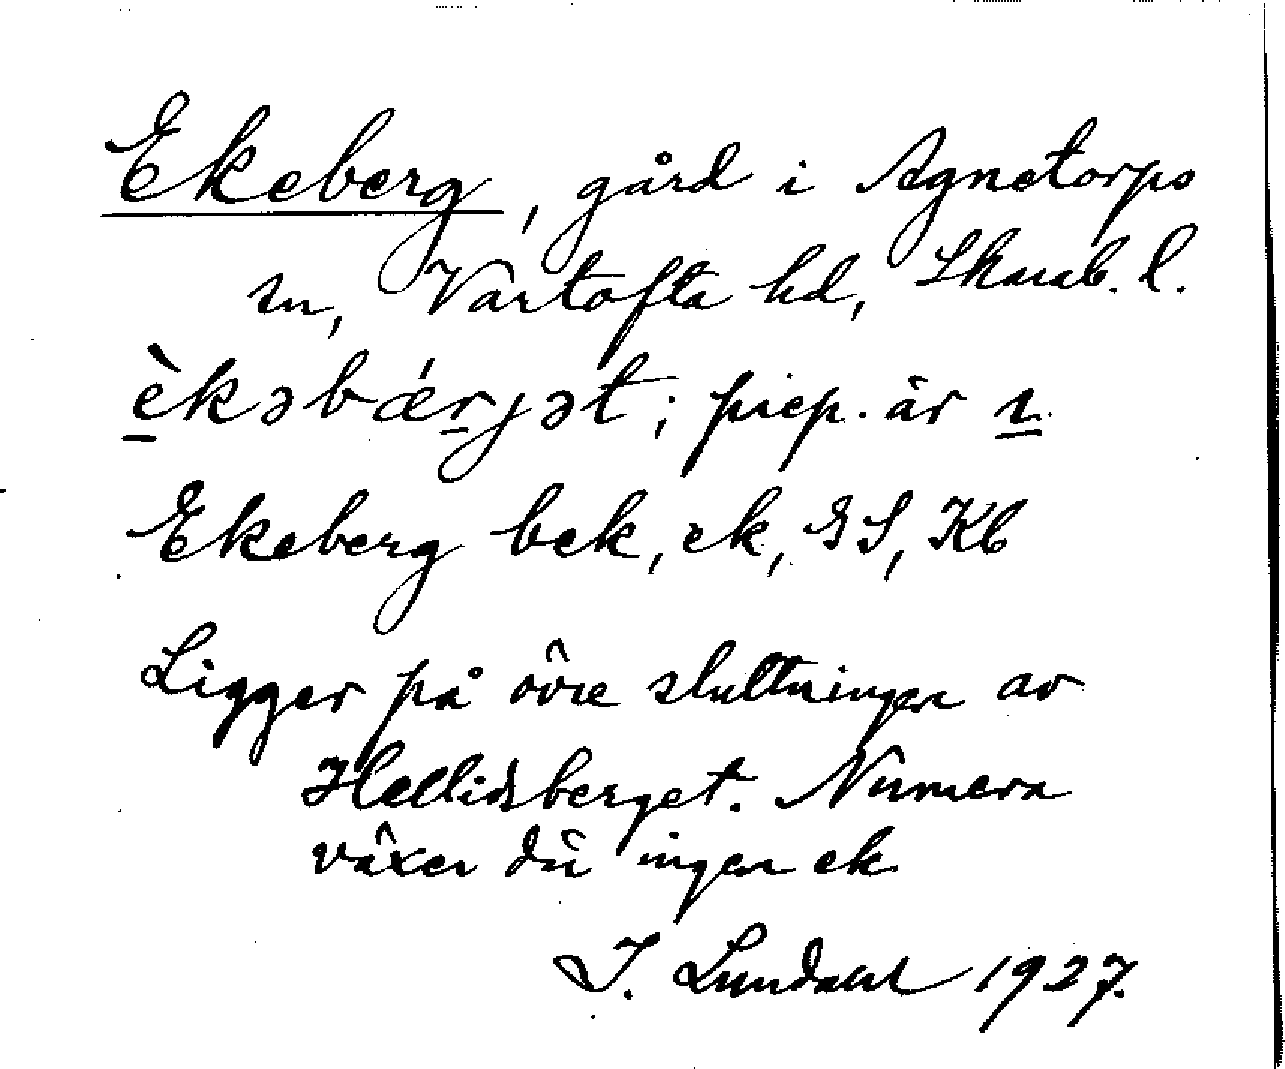 Ekeberg, gård i Agnetorps
sn, Vartofta hd, Skarab. l.
èkəbǽrjət; prep. är ı
Ekeberg bek, ek, GS, Kb
Ligger på övre sluttningen av
Hellidsberget. Numera
växer där ingen ek
I. Lundahl 1927.